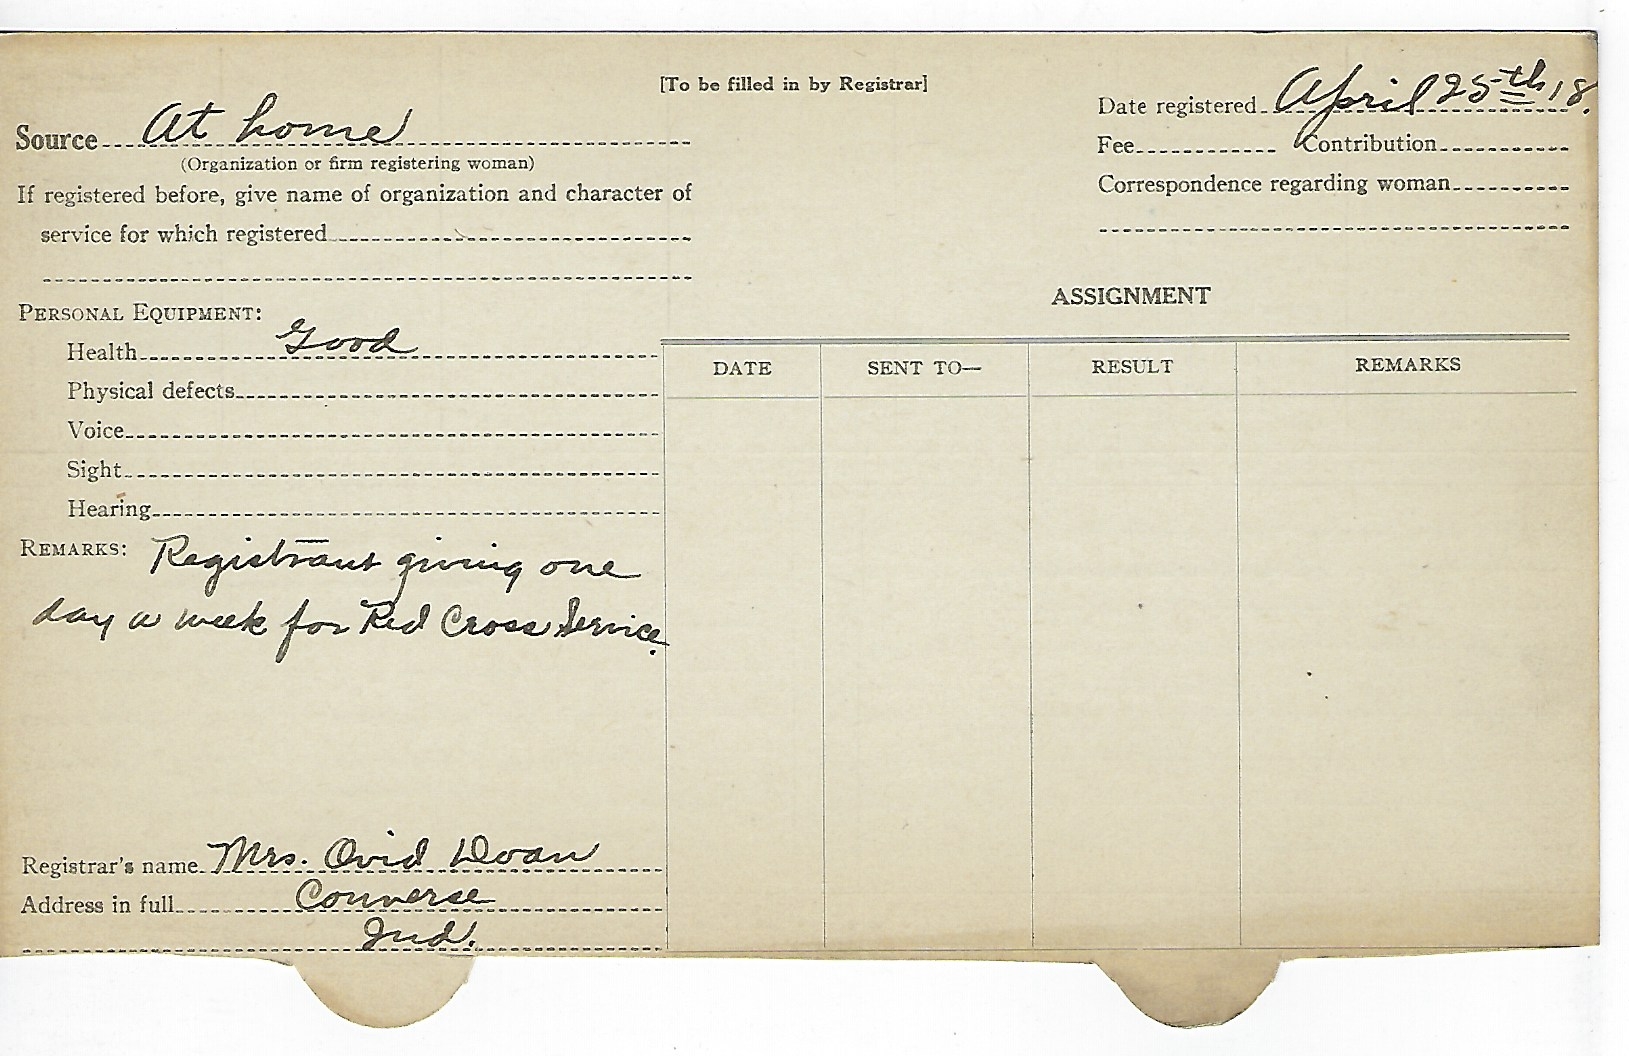 [To be filled in by Registrar]
Date registered April 25th 18.
Source At home
(Organization or firm registering woman)
Fee Contribution
If registered before, give name of organization and character of
service for which registered
Correspondence regarding woman
PERSONAL EQUIPMENT:
Health Good
Physical defects
Voice
Sight
Hearing
REMARKS: Registrant giving one
day a week for Red Cross Service.
ASSIGNMENT
DATE SENT TO— RESULT REMARKS
Registrar's name Mrs. Ovid Doan
Address in full Converse
Ind.